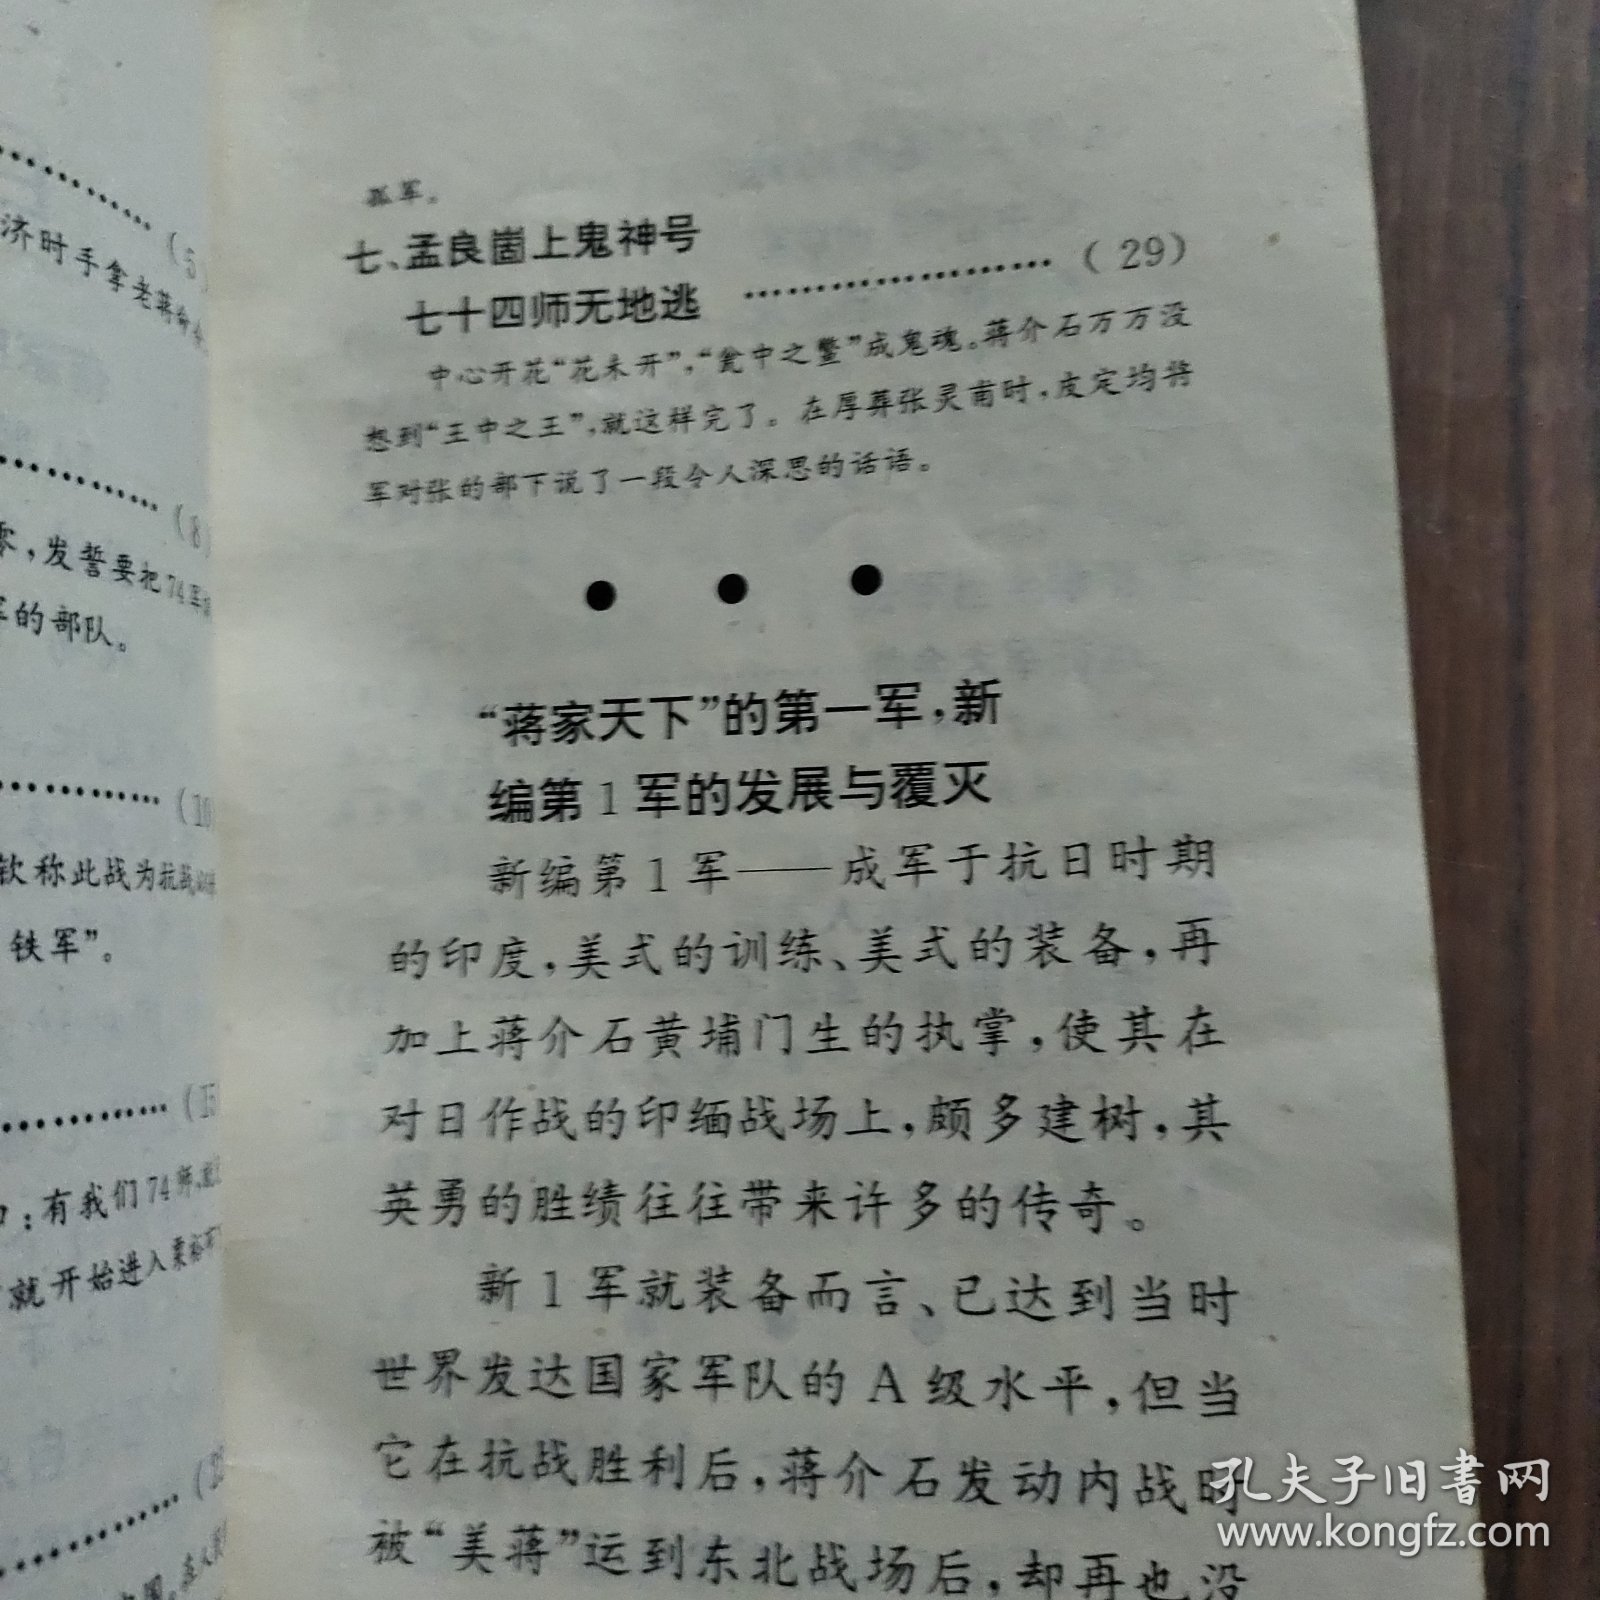 济时手拿老蒋
(5)
(8)
发誓要把74军
的部队。
(10
钦称此战为抗战
铁军”。
(15
：有我们74师，就
就开始进入
(2
孤军。
七、孟良崮上鬼神号
七十四师无地逃 ……………………（29）
中心开花“花未开”，“瓮中之鳖”成鬼魂。蒋介石万万没
想到“王中之王”，就这样完了。在厚葬张灵甫时，皮定均将
军对张的部下说了一段令人深思的话语。
● ● ●
“蒋家天下”的第一军，新
编第1军的发展与覆灭
新编第1军——成军于抗日时期
的印度，美式的训练、美式的装备，再
加上蒋介石黄埔门生的执掌，使其在
对日作战的印缅战场上，颇多建树，其
英勇的胜绩往往带来许多的传奇。
新1军就装备而言、已达到当时
世界发达国家军队的A级水平，但当
它在抗战胜利后，蒋介石发动内战时
被“美蒋”运到东北战场后，却再也没
孔夫子旧书网
www.kongfz.com